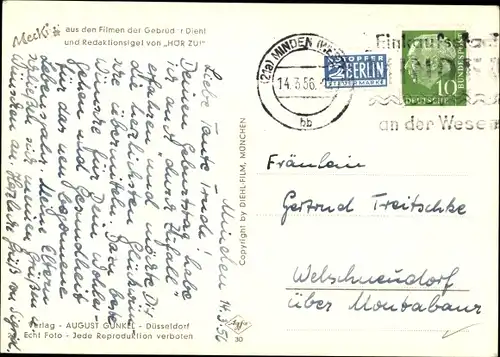 Mecki
aus den Filmen der Gebrüder Diehl
und Redaktionsigel von „HÖR ZU!"
München 14.3.56
Liebe Tante Trude!
Deinen Geburtstag habe
ich auch durch Zufall
erfahren und möchte Dir
die herzlichsten Glückwün
sche übermitteln. Ganz beste
Wünsche für Dein Wohler-
gehen und Gesundheit
für das neu begonnene
Lebensjahr. Meine Eltern
Grüßen
Herzliche Grüße von
Verlag - AUGUST GUNKEL - Düsseldorf
Echt Foto - Jede Reproduktion verboten
Agfa
30
Copyright by DIEHL-FILM, MÜNCHEN
(21a) MINDEN
14.3.56
bb
NOTOPFER
2 BERLIN
STEUERMARKE
Einkaufsstadt
MINDEN
an der Weser
10
DEUTSCHE
BUNDESPOST
Fräulein
Gertrud Treitschke
Welschneudorf
über Montabaur